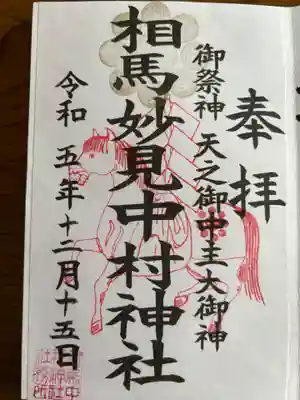 奉拝
御祭神 天之御中主大御神
相馬妙見中村神社
令和 五年 十二月 十五日